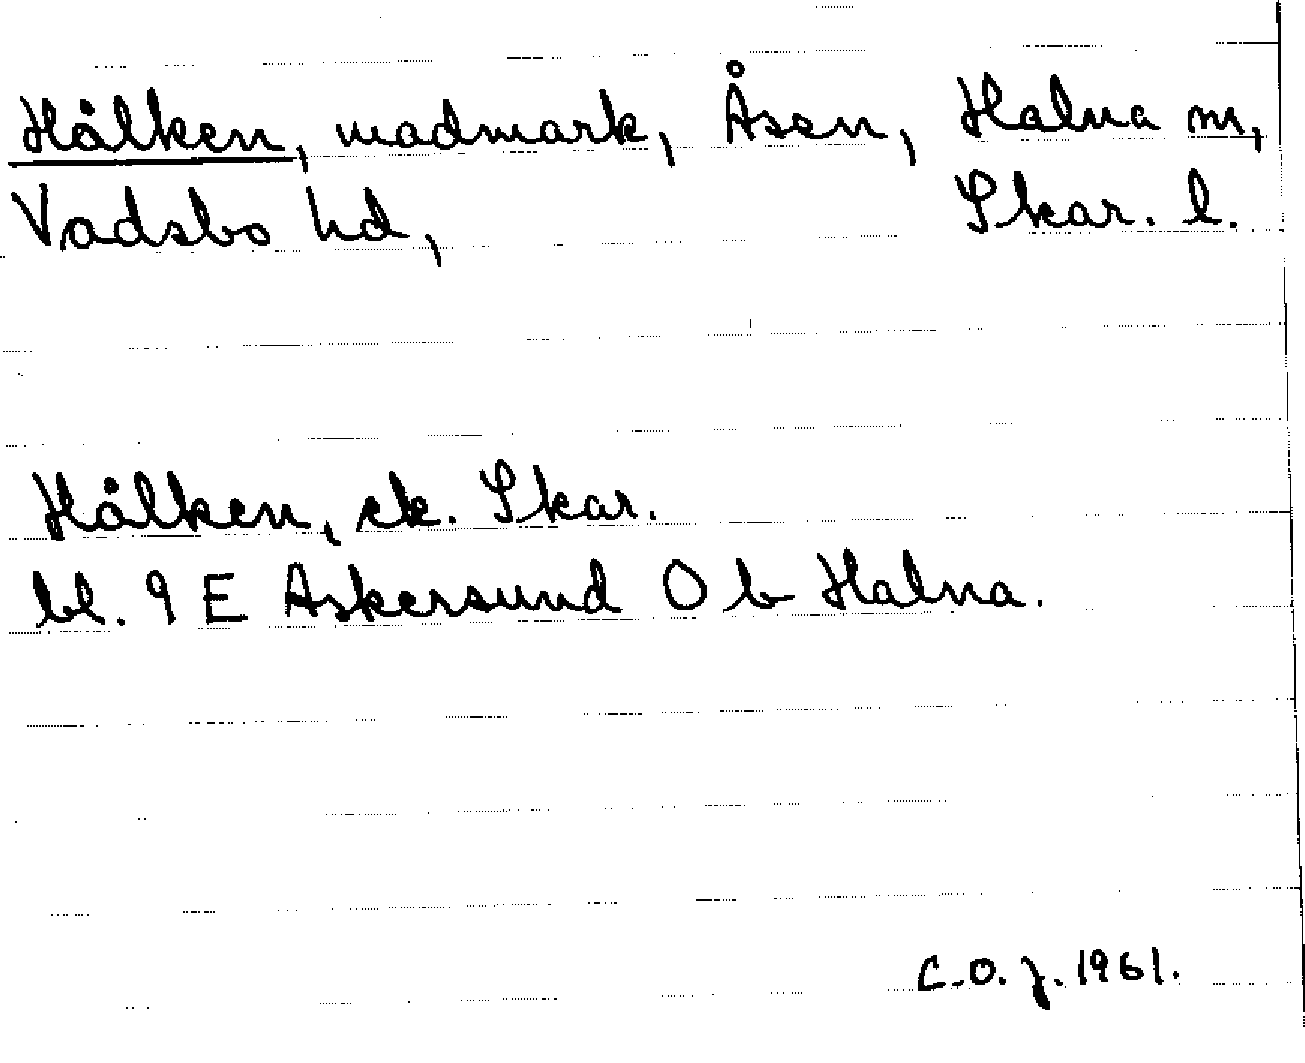 Hålken, madmark, Åsen, Halna sn,
Vadsbo hd, Skar. l.
Hålken, ek. Skar.
bl. 9 E Askersund O b Halna.
C.O.J. 1961.